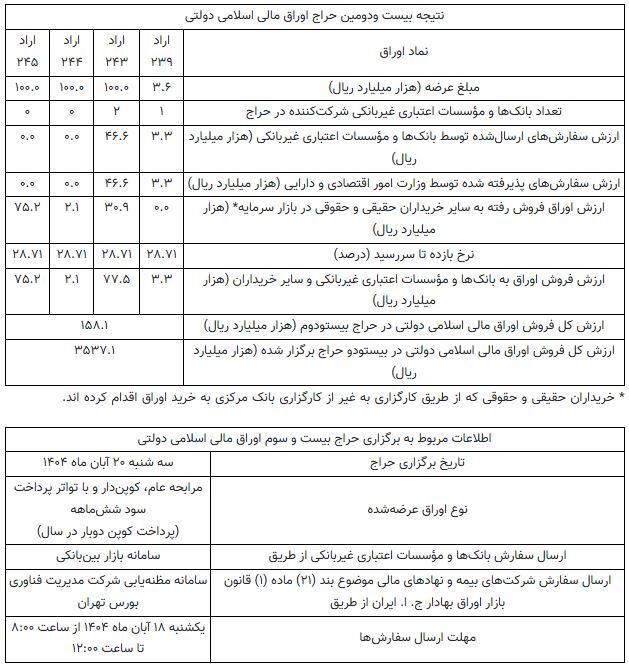 نتیجه بیست ودومین حراج اوراق مالی اسلامی دولتی
نماد اوراق
اراد ۲۳۹
اراد ۲۴۳
اراد ۲۴۴
اراد ۲۴۵
مبلغ عرضه (هزار میلیارد ریال)
۳.۶
۱۰۰.۰
۱۰۰.۰
۱۰۰.۰
تعداد بانک‌ها و مؤسسات اعتباری غیربانکی شرکت‌کننده در حراج
۱
۲
۰
۰
ارزش سفارش‌های ارسال‌شده توسط بانک‌ها و مؤسسات اعتباری غیربانکی (هزار میلیارد
ریال)
۳.۳
۴۶.۶
۰.۰
۰.۰
ارزش سفارش‌های پذیرفته شده توسط وزارت امور اقتصادی و دارایی (هزار میلیارد ریال)
۳.۳
۴۶.۶
۰.۰
۰.۰
ارزش اوراق فروش رفته به سایر خریداران حقیقی و حقوقی در بازار سرمایه* (هزار
میلیارد ریال)
۰.۰
۳۰.۹
۲.۱
۷۵.۲
نرخ بازده تا سررسید (درصد)
۲۸.۷۱
۲۸.۷۱
۲۸.۷۱
۲۸.۷۱
ارزش فروش اوراق به بانک‌ها و مؤسسات اعتباری غیربانکی و سایر خریداران (هزار
میلیارد ریال)
۳.۳
۷۷.۵
۲.۱
۷۵.۲
ارزش کل فروش اوراق مالی اسلامی دولتی در حراج بیستودوم (هزار میلیارد ریال)
۱۵۸.۱
ارزش کل فروش اوراق مالی اسلامی دولتی در بیستودو حراج برگزار شده (هزار میلیارد
ریال)
۳۵۳۷.۱
* خریداران حقیقی و حقوقی که از طریق کارگزاری به غیر از کارگزاری بانک مرکزی به خرید اوراق اقدام کرده اند.
اطلاعات مربوط به برگزاری حراج بیست و سوم اوراق مالی اسلامی دولتی
تاریخ برگزاری حراج
سه شنبه ۲۰ آبان ماه ۱۴۰۴
نوع اوراق عرضه‌شده
مرابحه عام، کوپن‌دار و با تواتر پرداخت
سود شش‌ماهه
(پرداخت کوپن دوبار در سال)
ارسال سفارش بانک‌ها و مؤسسات اعتباری غیربانکی از طریق
سامانه بازار بین‌بانکی
ارسال سفارش شرکت‌های بیمه و نهادهای مالی موضوع بند (۲۱) ماده (۱) قانون
بازار اوراق بهادار ج. ا. ایران از طریق
سامانه مظنه‌یابی شرکت مدیریت فناوری
بورس تهران
مهلت ارسال سفارش‌ها
یکشنبه ۱۸ آبان ماه ۱۴۰۴ از ساعت ۸:۰۰
تا ساعت ۱۲:۰۰